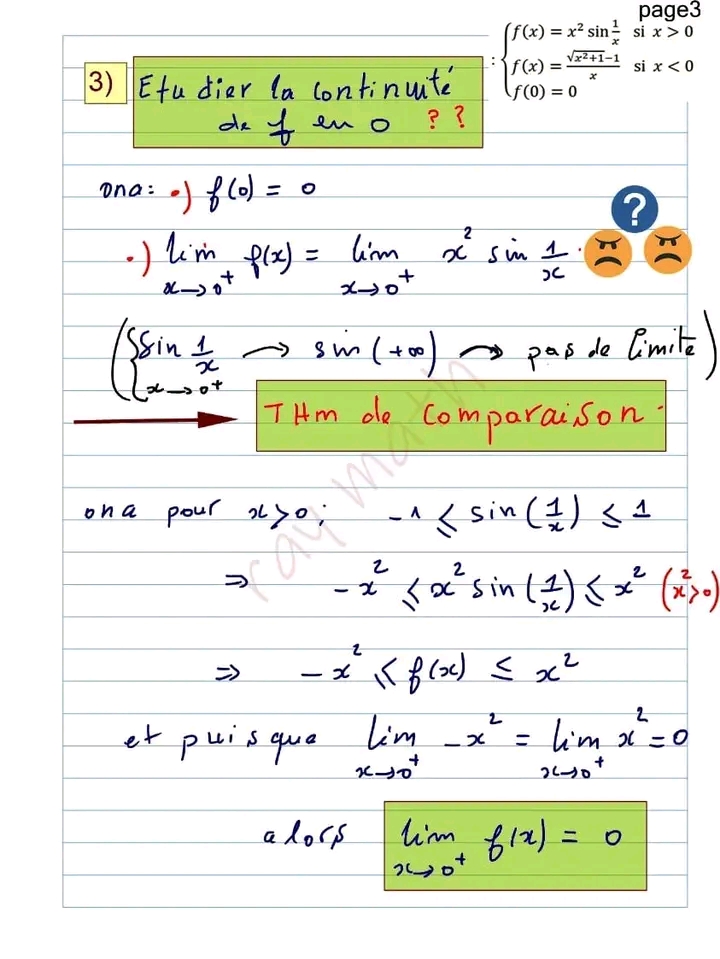 page3
: { f(x) = x² sin 1/x si x > 0
f(x) = (√(x²+1)−1)/x si x < 0
f(0) = 0
3) Etudier la continuité
de f en 0 ? ?
ona: •) f(0) = 0
•) lim x→0⁺ f(x) = lim x→0⁺ x² sin 1/x ?
( { sin 1/x x→0⁺ → sin(+∞) → pas de limite )
THm de Comparaison.
ona pour x>0; -1 ⩽ sin(1/x) ⩽ 1
⇒ -x² ⩽ x² sin(1/x) ⩽ x² (x²>0)
⇒ -x² ⩽ f(x) ⩽ x²
et puisque lim x→0⁺ -x² = lim x→0⁺ x² = 0
alors lim x→0⁺ f(x) = 0
ray math